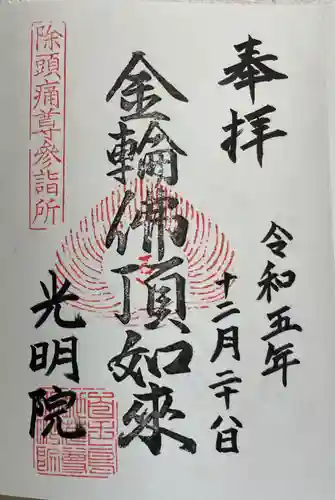 奉拝
令和五年
十二月二十八日
金輪佛頂如來
除頭痛尊參詣所
光明院